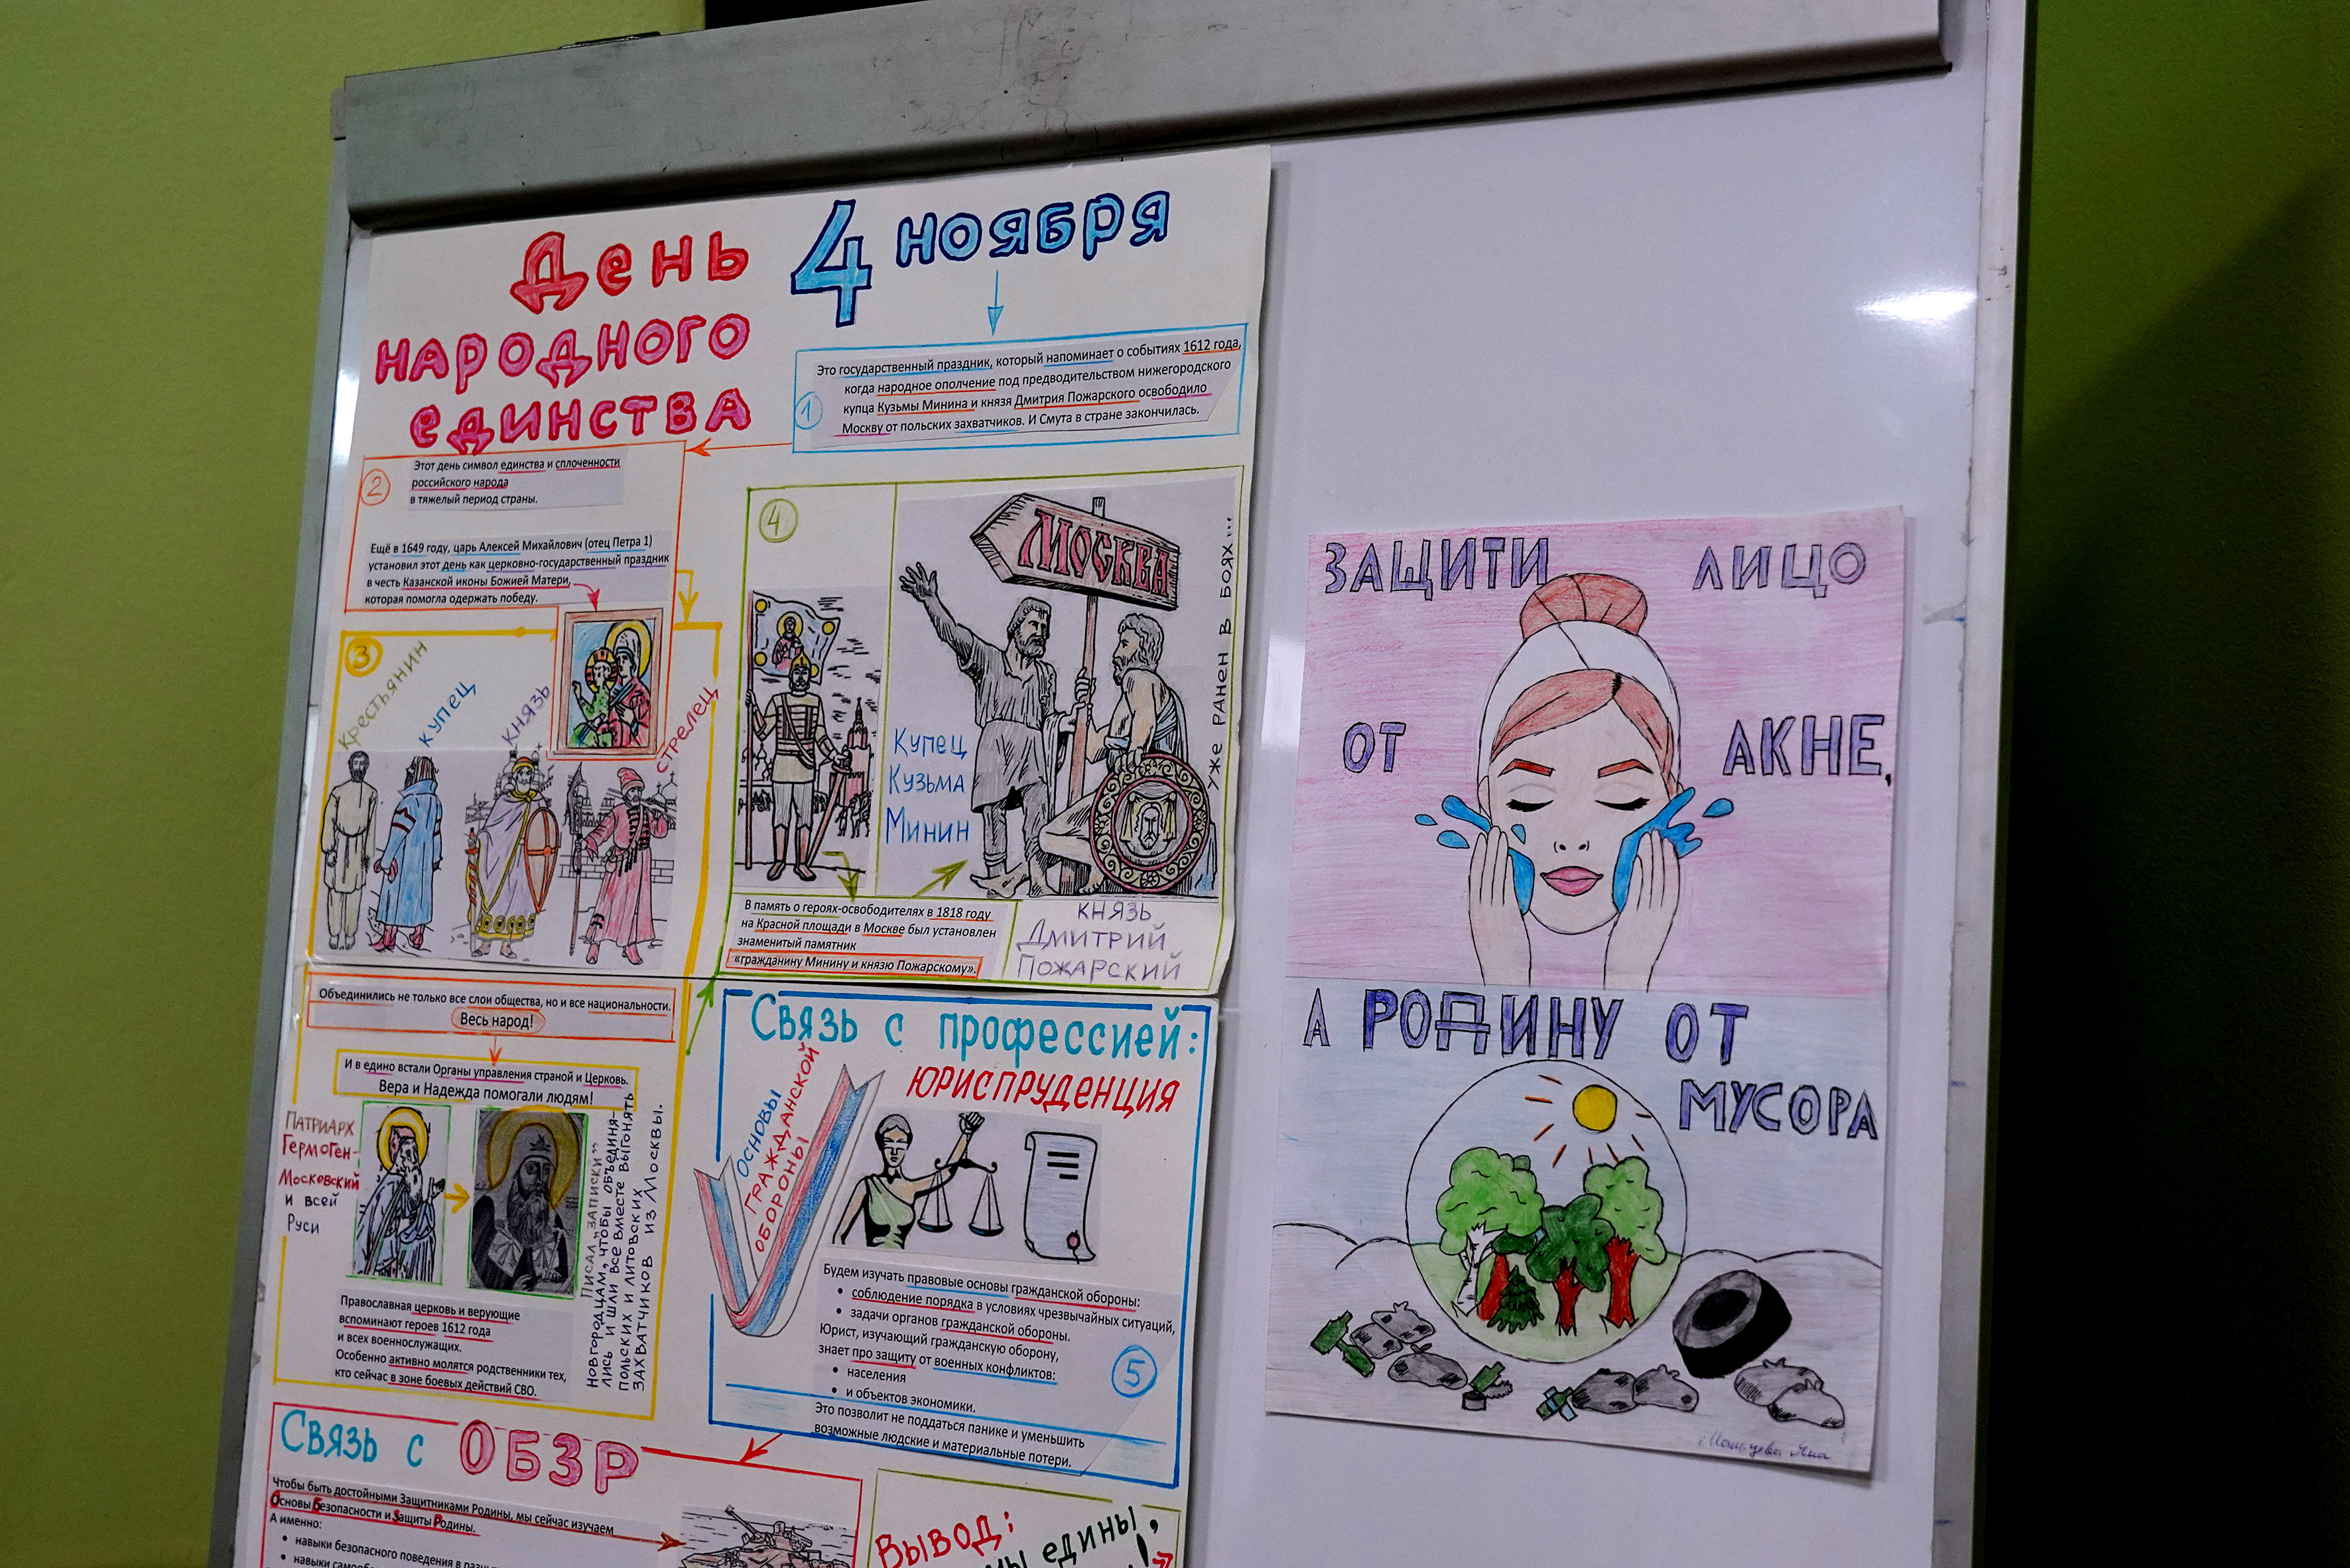 День
народного
единства
4 ноября
1
Это государственный праздник, который напоминает о событиях 1612 года,
когда народное ополчение под предводительством нижегородского
купца Кузьмы Минина и князя Дмитрия Пожарского освободило
Москву от польских захватчиков. И Смута в стране закончилась.
2
Этот день символ единства и сплоченности
российского народа
в тяжелый период страны.
Ещё в 1649 году, царь Алексей Михайлович (отец Петра 1)
установил этот день как церковно-государственный праздник
в честь Казанской иконы Божией Матери,
которая помогла одержать победу.
3
Крестьянин
купец
князь
стрелец
4
Москва
уже ранен в боях...
Купец
Кузьма
Минин
В память о героях-освободителях в 1818 году
на Красной площади в Москве был установлен
знаменитый памятник
«гражданину Минину и князю Пожарскому».
князь
Дмитрий
Пожарский
Объединились не только все слои общества, но и все национальности.
Весь народ!
И в едино встали Органы управления страной и Церковь.
Вера и Надежда помогали людям!
Патриарх
Гермоген-
Московский
и всей
Руси
Писал „записки”
новгородцам, чтобы объединя-
лись и шли все вместе выгонять
польских и литовских
захватчиков из Москвы.
Православная церковь и верующие
вспоминают героев 1612 года
и всех военнослужащих.
Особенно активно молятся родственники тех,
кто сейчас в зоне боевых действий СВО.
Связь с профессией:
юриспруденция
основы
гражданской
обороны
Будем изучать правовые основы гражданской обороны:
• соблюдение порядка в условиях чрезвычайных ситуаций,
• задачи органов гражданской обороны.
Юрист, изучающий гражданскую оборону,
знает про защиту от военных конфликтов:
• населения
• и объектов экономики.
Это позволит не поддаться панике и уменьшить
возможные людские и материальные потери.
5
Связь с ОБЗР
Чтобы быть достойными Защитниками Родины, мы сейчас изучаем
Основы Безопасности и Защиты Родины.
А именно:
• навыки безопасного поведения в
• навыки
Вывод:
мы едины,
ЗАЩИТИ ЛИЦО
ОТ АКНЕ,
А РОДИНУ ОТ
МУСОРА
Яна